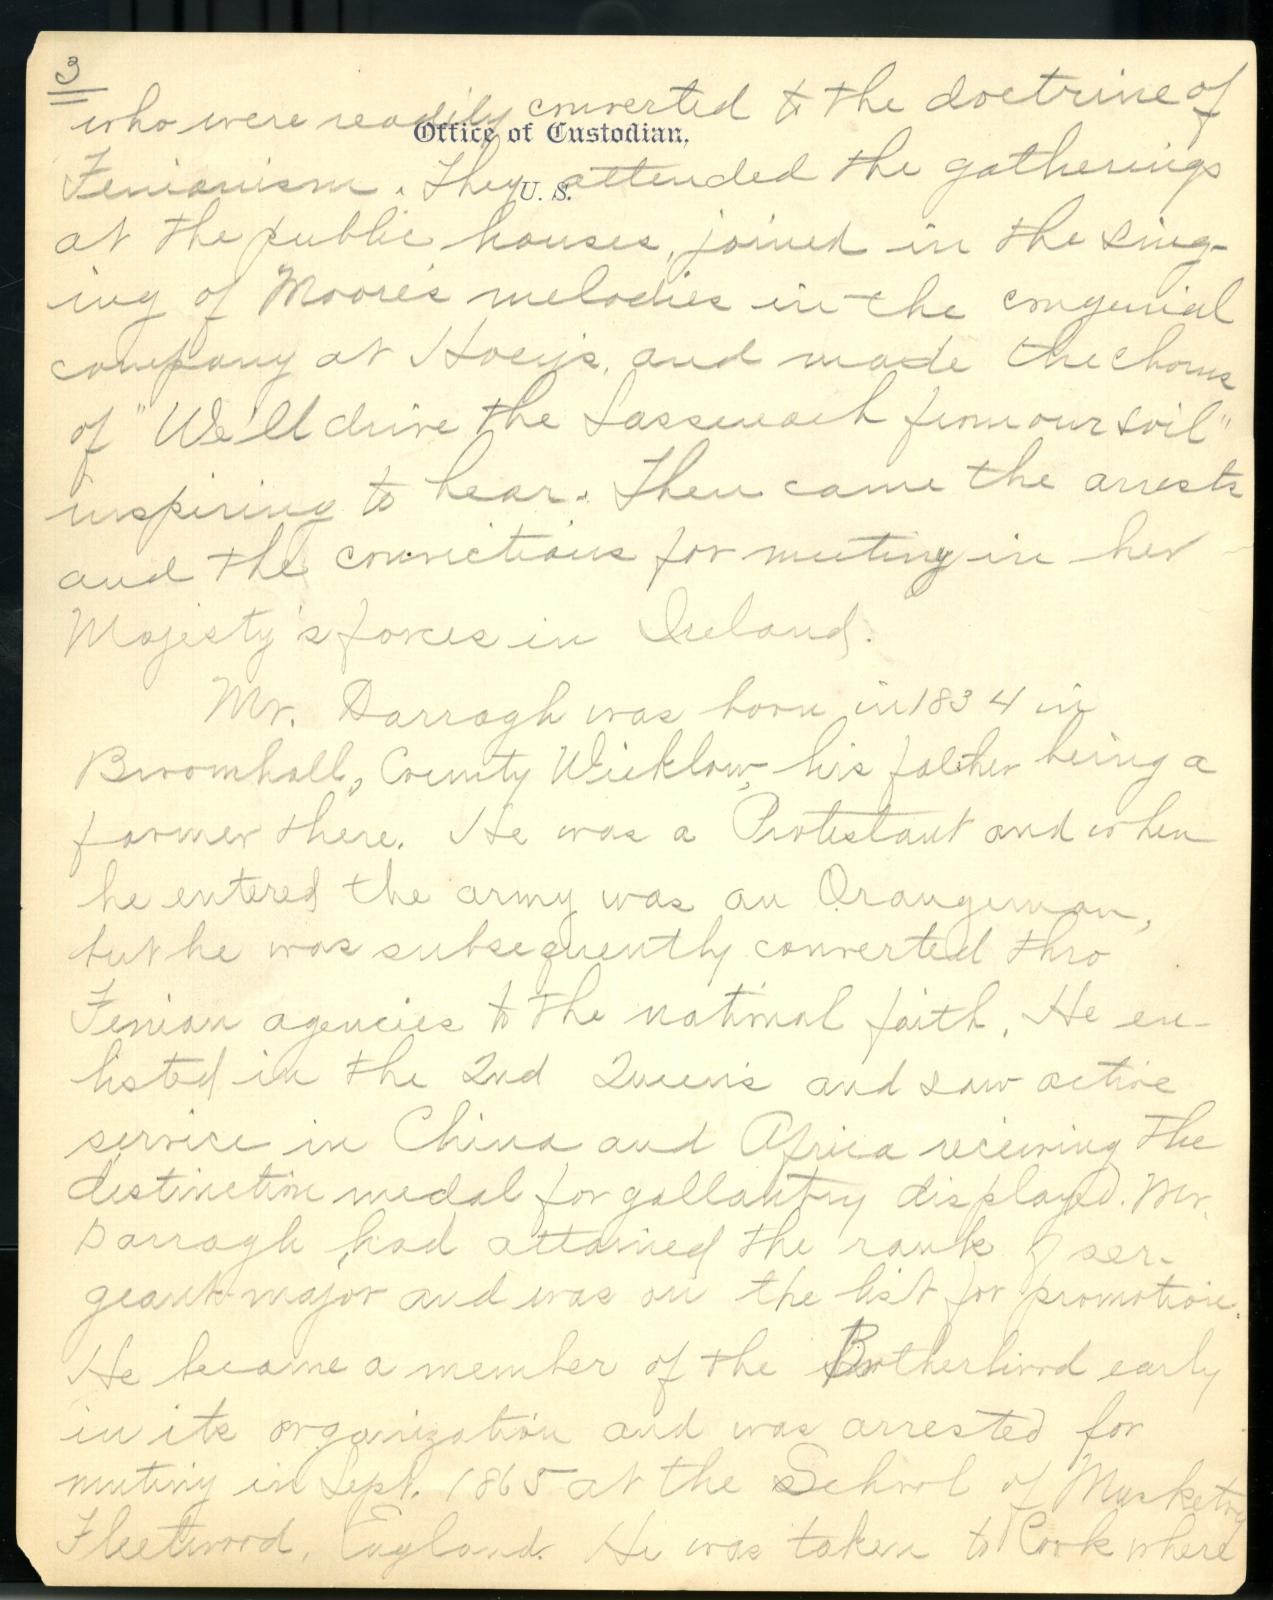 3
who were readily converted to the doctrine of
Office of Custodian,
Fenianism. They attended the gatherings
U. S.
at the public houses, joined in the sing-
ing of Moore's melodies in the congenial
company at Hoey's, and made the chorus
of "We'll drive the Sassenach from our soil"
inspiring to hear. Then came the arrests
and the convictions for mutiny in her
Majesty's forces in Ireland.
Mr. Darragh was born in 1834 in
Broomhall, County Wicklow, his father being a
farmer there. He was a Protestant and when
he entered the army was an Orangeman,
but he was subsequently converted thro
Fenian agencies to the national faith. He en-
listed in the 2nd Queen's and saw active
service in China and Africa receiving the
distinction medal for gallantry displayed. Mr.
Darragh had attained the rank of ser-
geant-major and was on the list for promotion.
He became a member of the Brotherhood early
in its organization and was arrested for
mutiny in Sept. 1865 at the School of Musketry
Fleetwood, England. He was taken to Cork where